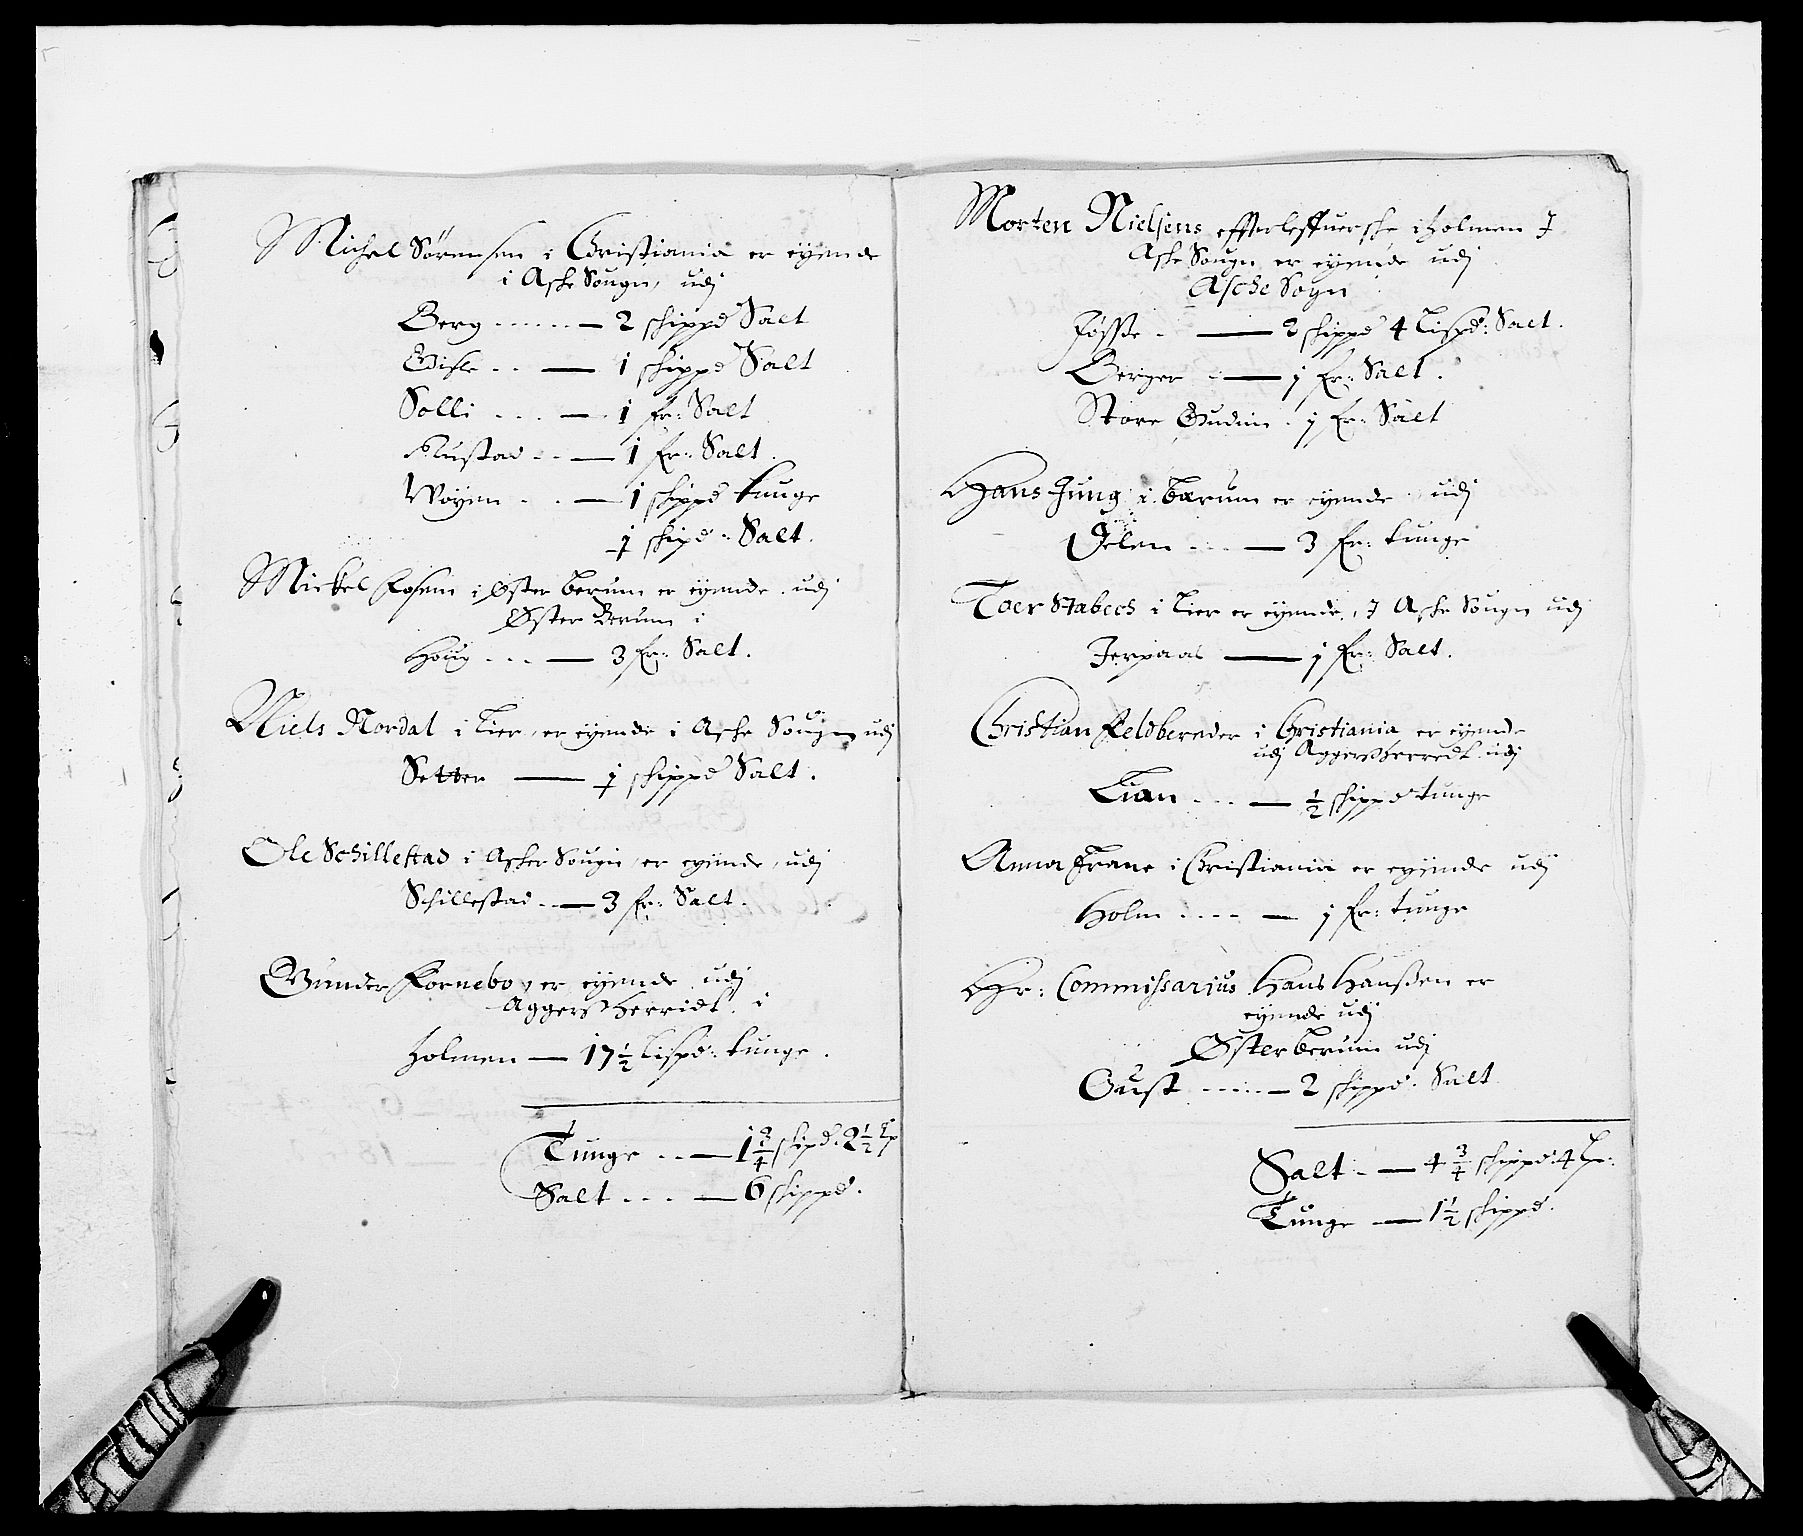 Michel Sörensen i Christiania er eyende
i Aske Sougn, udj
Berg ------ 2 schippd Salt
Gisle -- — 1 schippd Salt
Solli --- — 1 fr: Salt
Rustad -- — 1 fr: Salt.
Wøyen -- — 1 schippd tunge
1 schipd: Salt.
Mickel Fosem i Øster berum er eyende, udj
Øster Berum i
Houg --- — 3 fr: Salt.
Niels Nordal i Lier, er eyende i Aske Sougn udj
Setter — 1 schippd Salt.
Ole Schillestad i Asker Sougn, er eyende, udj
Schillestad -- — 3 fr: Salt.
Gunder Fornebo, er eyende udj
Aggers herridt i
Holmen — 17½ Lispd: tunge.
Tunge -- — 1¾ skipd. 2½ Lp
Salt --- — 6 schippd.
Morten Nielsens effterleffuerske i Holmen J
Aske Sougn er eyende udj
Asche Sogn
Føsse - — 2 schippd 4 Lispd: Salt.
Berger - — 1 fr: Salt.
Store Gudim. 1 fr: Salt
Hans Jung i bærum er eyende, udj
Øelen --- — 3 fr: tunge
Toer Stabech i Lier er eyende, J Aske Sougn udj
Jerpaas — 1 fr: Salt.
Christian Feldbereder i Christiania er eyende
udj Aggersherredt udj
Lian --- — ½ schippd tunge
Anna Trane i Christiania er eyende udj
Holm ---- — 1 fr: tunge
Hr: Commissarius Hans Hanssen er
eyende udj
Øster berum udj
Oust ---- — 2 schippd. Salt
Salt - — 4¾ schippd: 4 Lp:
Tunge — 1½ schippd.